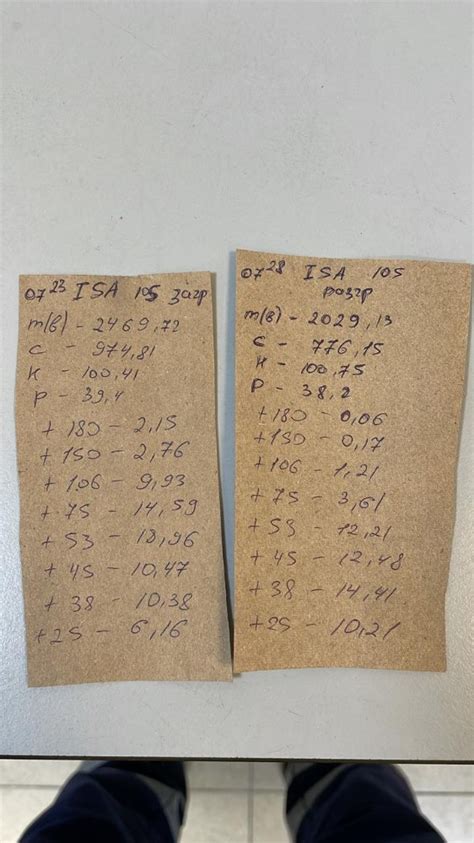 07²³ ISA 105 загр
m(в) - 2469,72
с - 974,81
к - 100,41
р - 39,4
+ 180 - 2,15
+ 150 - 2,76
+ 106 - 9,93
+ 75 - 14,59
+ 53 - 12,96
+ 45 - 10,47
+ 38 - 10,38
+25 - 6,16
07²⁸ ISA 105
разгр
m(в) - 2029,13
с - 776,15
к - 100,75
р - 38,2
+180 - 0,06
+150 - 0,17
+106 - 1,21
+75 - 3,61
+53 - 12,21
+45 - 12,48
+38 - 14,41
+25 - 10,21